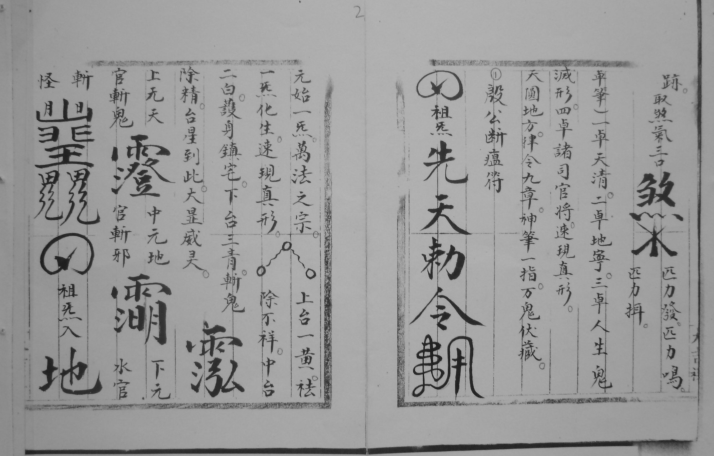 跡。取煞氣三口 匹力發。匹力嗚。
匹力揖。
筆一卓天清。二卓地寧。三卓人生鬼
滅形。四卓諸司官將。速現真形。
天圓地方。律令九章。神筆一指。万鬼伏藏。
①殷公断瘟符
祖炁 先天勅令
元始一炁。萬法之宗。 上台一黃。祛
一炁化生。速現真形。 除不祥。中台
二白。護身鎮宅。下台三青。斬鬼
除精。台星到此。大显威灵。
上元天 中元地 下元
官斬鬼 官斬邪 水官
斬
怪 祖炁入 地
2